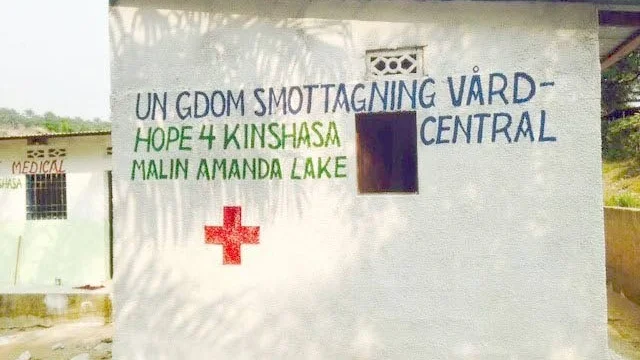 UN GDOM SMOTTAGNING VÅRD-
CENTRAL
HOPE 4 KINSHASA
MALIN AMANDA LAKE
MEDICAL